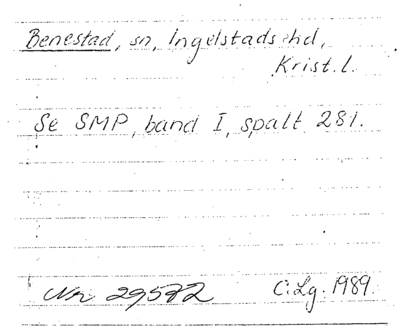 Benestad, sn, Ingelstads hd,
Krist. l.
Se SMP, band I, spalt 281.
Nr 29572 C. Lg. 1989.